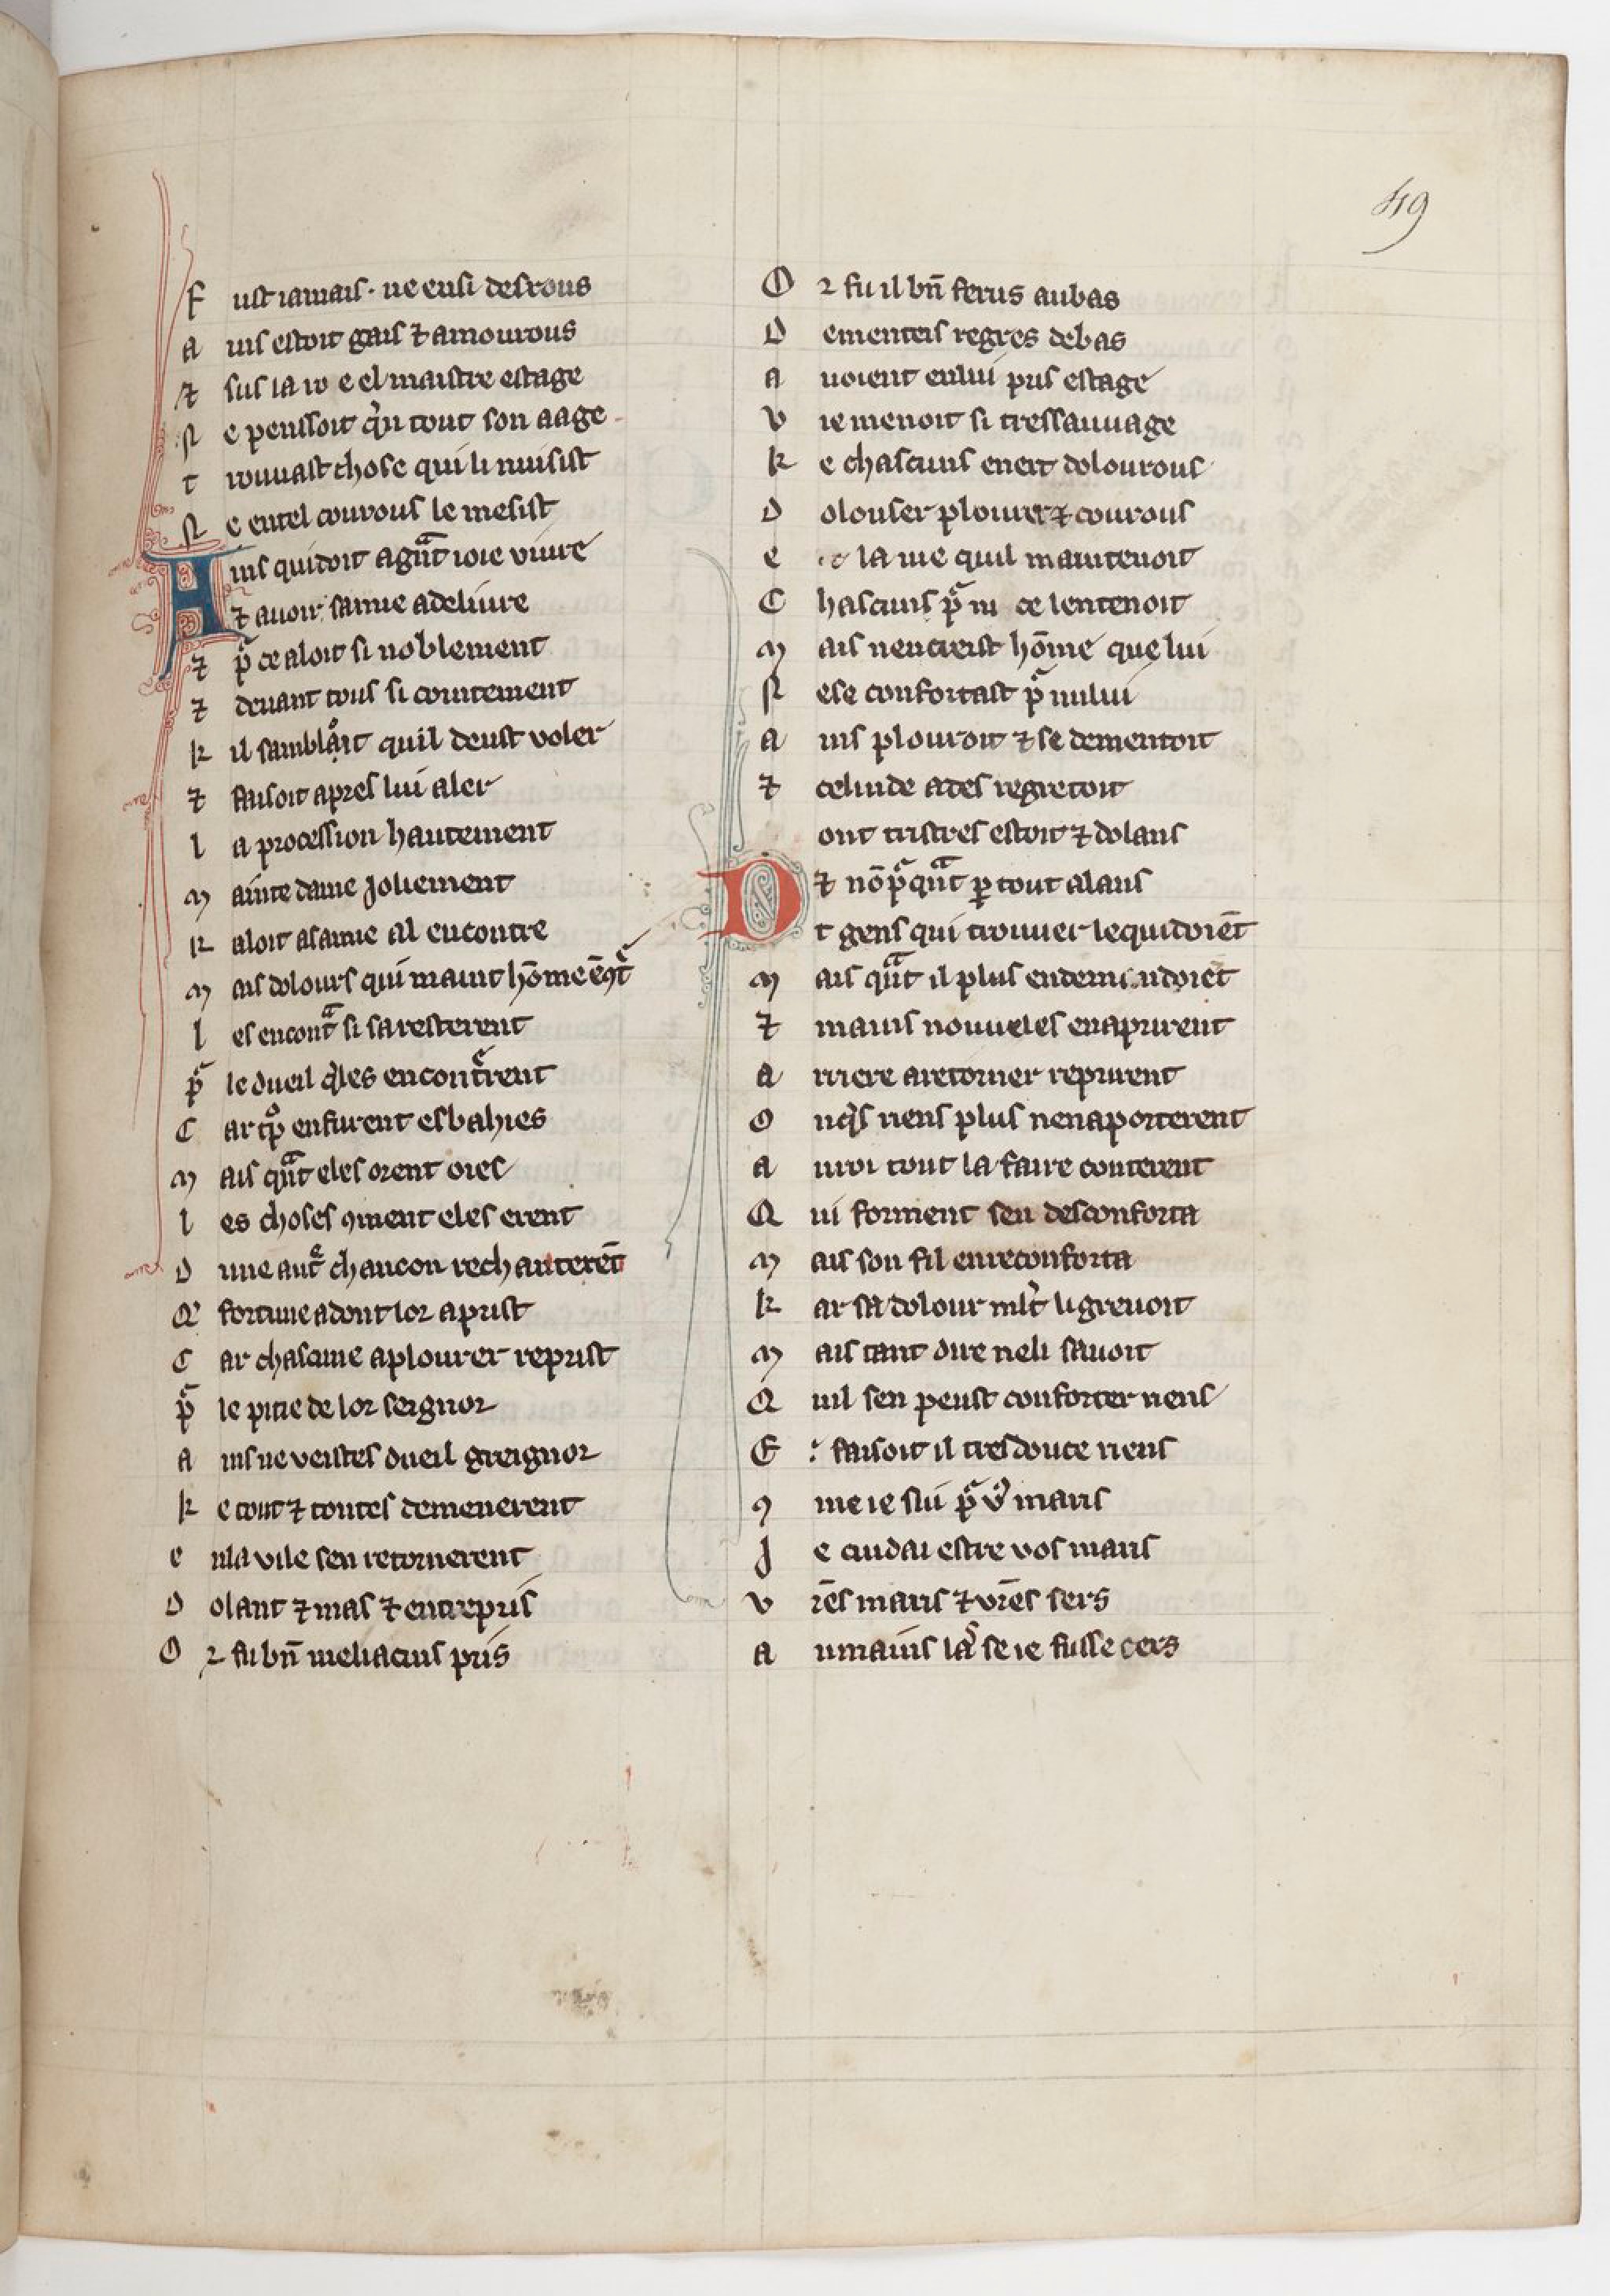 49
F ust iamais · ne ensi desrous
A ins estoit gais ⁊ amourous
⁊ sus la ro e el maistre estage
N e penssoit qͥn tout son aage
T rouuast chose qui li nuisist
N e en tel courous le mesist
A ins quidoit a gͣnt ioie viure
⁊ auoir samie a deliure
⁊ pͬ ce aloit si noblement
⁊ deuant tous si cointement
K il samblͦit quil deust voler
⁊ faisoit apres lui aler
L a procession hautement
M ainte dame Joliement
R aloit a samie al encontre
M ais dolours qui maint hōme
L es encontͣ si sa resterent
pͬ le dueil qͥles encontͬrent
C ar en furent esbahies
M ais qͣnt eles orent oies
L es choses ꝯment eles erent
D une autͤ chancon rechanterēt
Qͤ fortune adont lor aprist
C ar chascune a plourer reprist
pͬ le pitie de lor seignor
A ins ne veistes dueil greignor
K e tout ⁊ toutes demenerent
E n la vile sen retornerent
D olant ⁊ mas ⁊ entrepris
O r fu bn̄ meliacins pris
O r fu il bn̄ ferus au bas
D ementeis regres debas
A uoient en lui pris estage
V ie menoit si tres sauuage
K e chascuns en ert dolourous
D olouser plourer ⁊ courous
E la uie quil maintenoit
C hascuns pͬ ce lentenoit
M ais nen creist hōme que lui
N e se confortast pͬ nului
A ins plouroit ⁊ se dementoit
⁊ celinde ades regretoit
D ont tristres estoit ⁊ dolans
⁊ nōpͬqͣnt ꝑ tout alans
t gens qui trouuer le quidoiēt
M ais qͣnt il plus en demandoiēt
⁊ mains nouueles en aprirent
A rriere a retorner reprirent
O nqͥs riens plus nen aporterent
A u roi tout la faire conterent
Q ui forment sen desconforta
M ais son fil en reconforta
K ar sa dolour ml̄t li greuoit
M ais tant dire ne li sauoit
Q uil sen peust conforter riens
E : faisoit il tres douce riens
ꝯ me ie sui pͬ vͦ maris
J e cuidai estre vos maris
V rēs maris ⁊ vrēs sers
A u mains se ie fusse cers